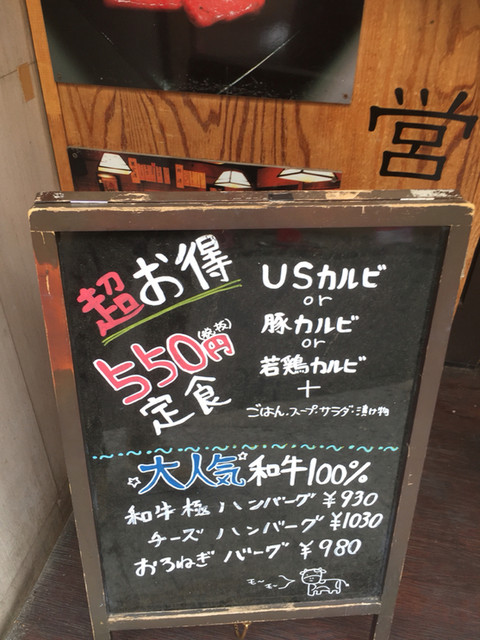 営
超お得
550円(税抜)
定食
USカルビ
or
豚カルビ
or
若鶏カルビ
+
ごはん.スープ.サラダ.漬け物
大人気 和牛100%
和牛極ハンバーグ ¥930
チーズ ハンバーグ ¥1030
おろねぎ バーグ ¥980
モ〜モ〜